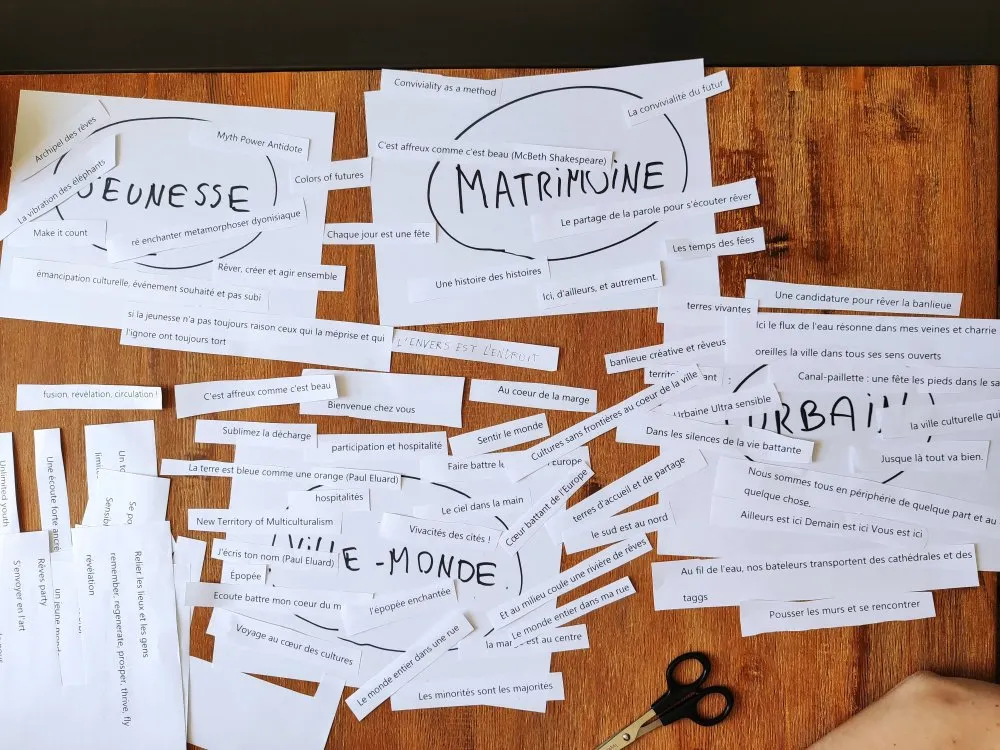 Archipel des rêves
La vibration des éléphants
Myth Power Antidote
JEUNESSE
Make it count
re enchanter metamorphoser dyonisiaque
Colors of futures
Chaque jour est une fête
Rêver, créer et agir ensemble
émancipation culturelle, événement souhaité et pas subi
si la jeunesse n'a pas toujours raison ceux qui la méprise et qui
l'ignore ont toujours tort
L'ENVERS EST L'ENDROIT
Conviviality as a method
La convivialité du futur
C'est affreux comme c'est beau (McBeth Shakespeare)
MATRIMOINE
Le partage de la parole pour s'écouter rêver
Les temps des fées
Une histoire des histoires
Ici, d'ailleurs, et autrement.
Une candidature pour rêver la banlieue
terres vivantes
Ici le flux de l'eau résonne dans mes veines et charrie
oreilles la ville dans tous ses sens ouverts
banlieue créative et rêveus
territ
ant
Canal-paillette : une fête les pieds dans le sa
Urbaine Ultra sensible
URBAIN
la ville culturelle qui
Dans les silences de la vie battante
Jusque là tout va bien.
Nous sommes tous en périphérie de quelque part et au
quelque chose.
Ailleurs est ici Demain est ici Vous est ici
Au fil de l'eau, nos bateleurs transportent des cathédrales et des
taggs
Pousser les murs et se rencontrer
fusion, revélation, circulation !
C'est affreux comme c'est beau
Bienvenue chez vous
Au coeur de la marge
Sublimez la décharge
participation et hospitalité
Sentir le monde
Cultures sans frontières au coeur de la ville
La terre est bleue comme une orange (Paul Eluard)
Faire battre l
europe
hospitalités
Le ciel dans la main
Cœur battant de l'Europe
terres d'accueil et de partage
New Territory of Multiculturalism
Vivacités des cités !
le sud est au nord
J'écris ton nom (Paul Eluard)
VILLE -MONDE
Epopée
Ecoute battre mon coeur du m
l'épopée enchantée
Et au milieu coule une rivière de rêves
Le monde entier dans ma rue
la mar
est au centre
Voyage au cœur des cultures
Le monde entier dans une rue
Les minorités sont les majorites
Unlimited youth
Une écoute forte ancre
Un to
limi
Se po
Sensib
S'envoyer en l'art
Rêves party
un jeune mond
Relier les lieux et les gens
remember, regenerate, prosper, thrive, fly
révélation